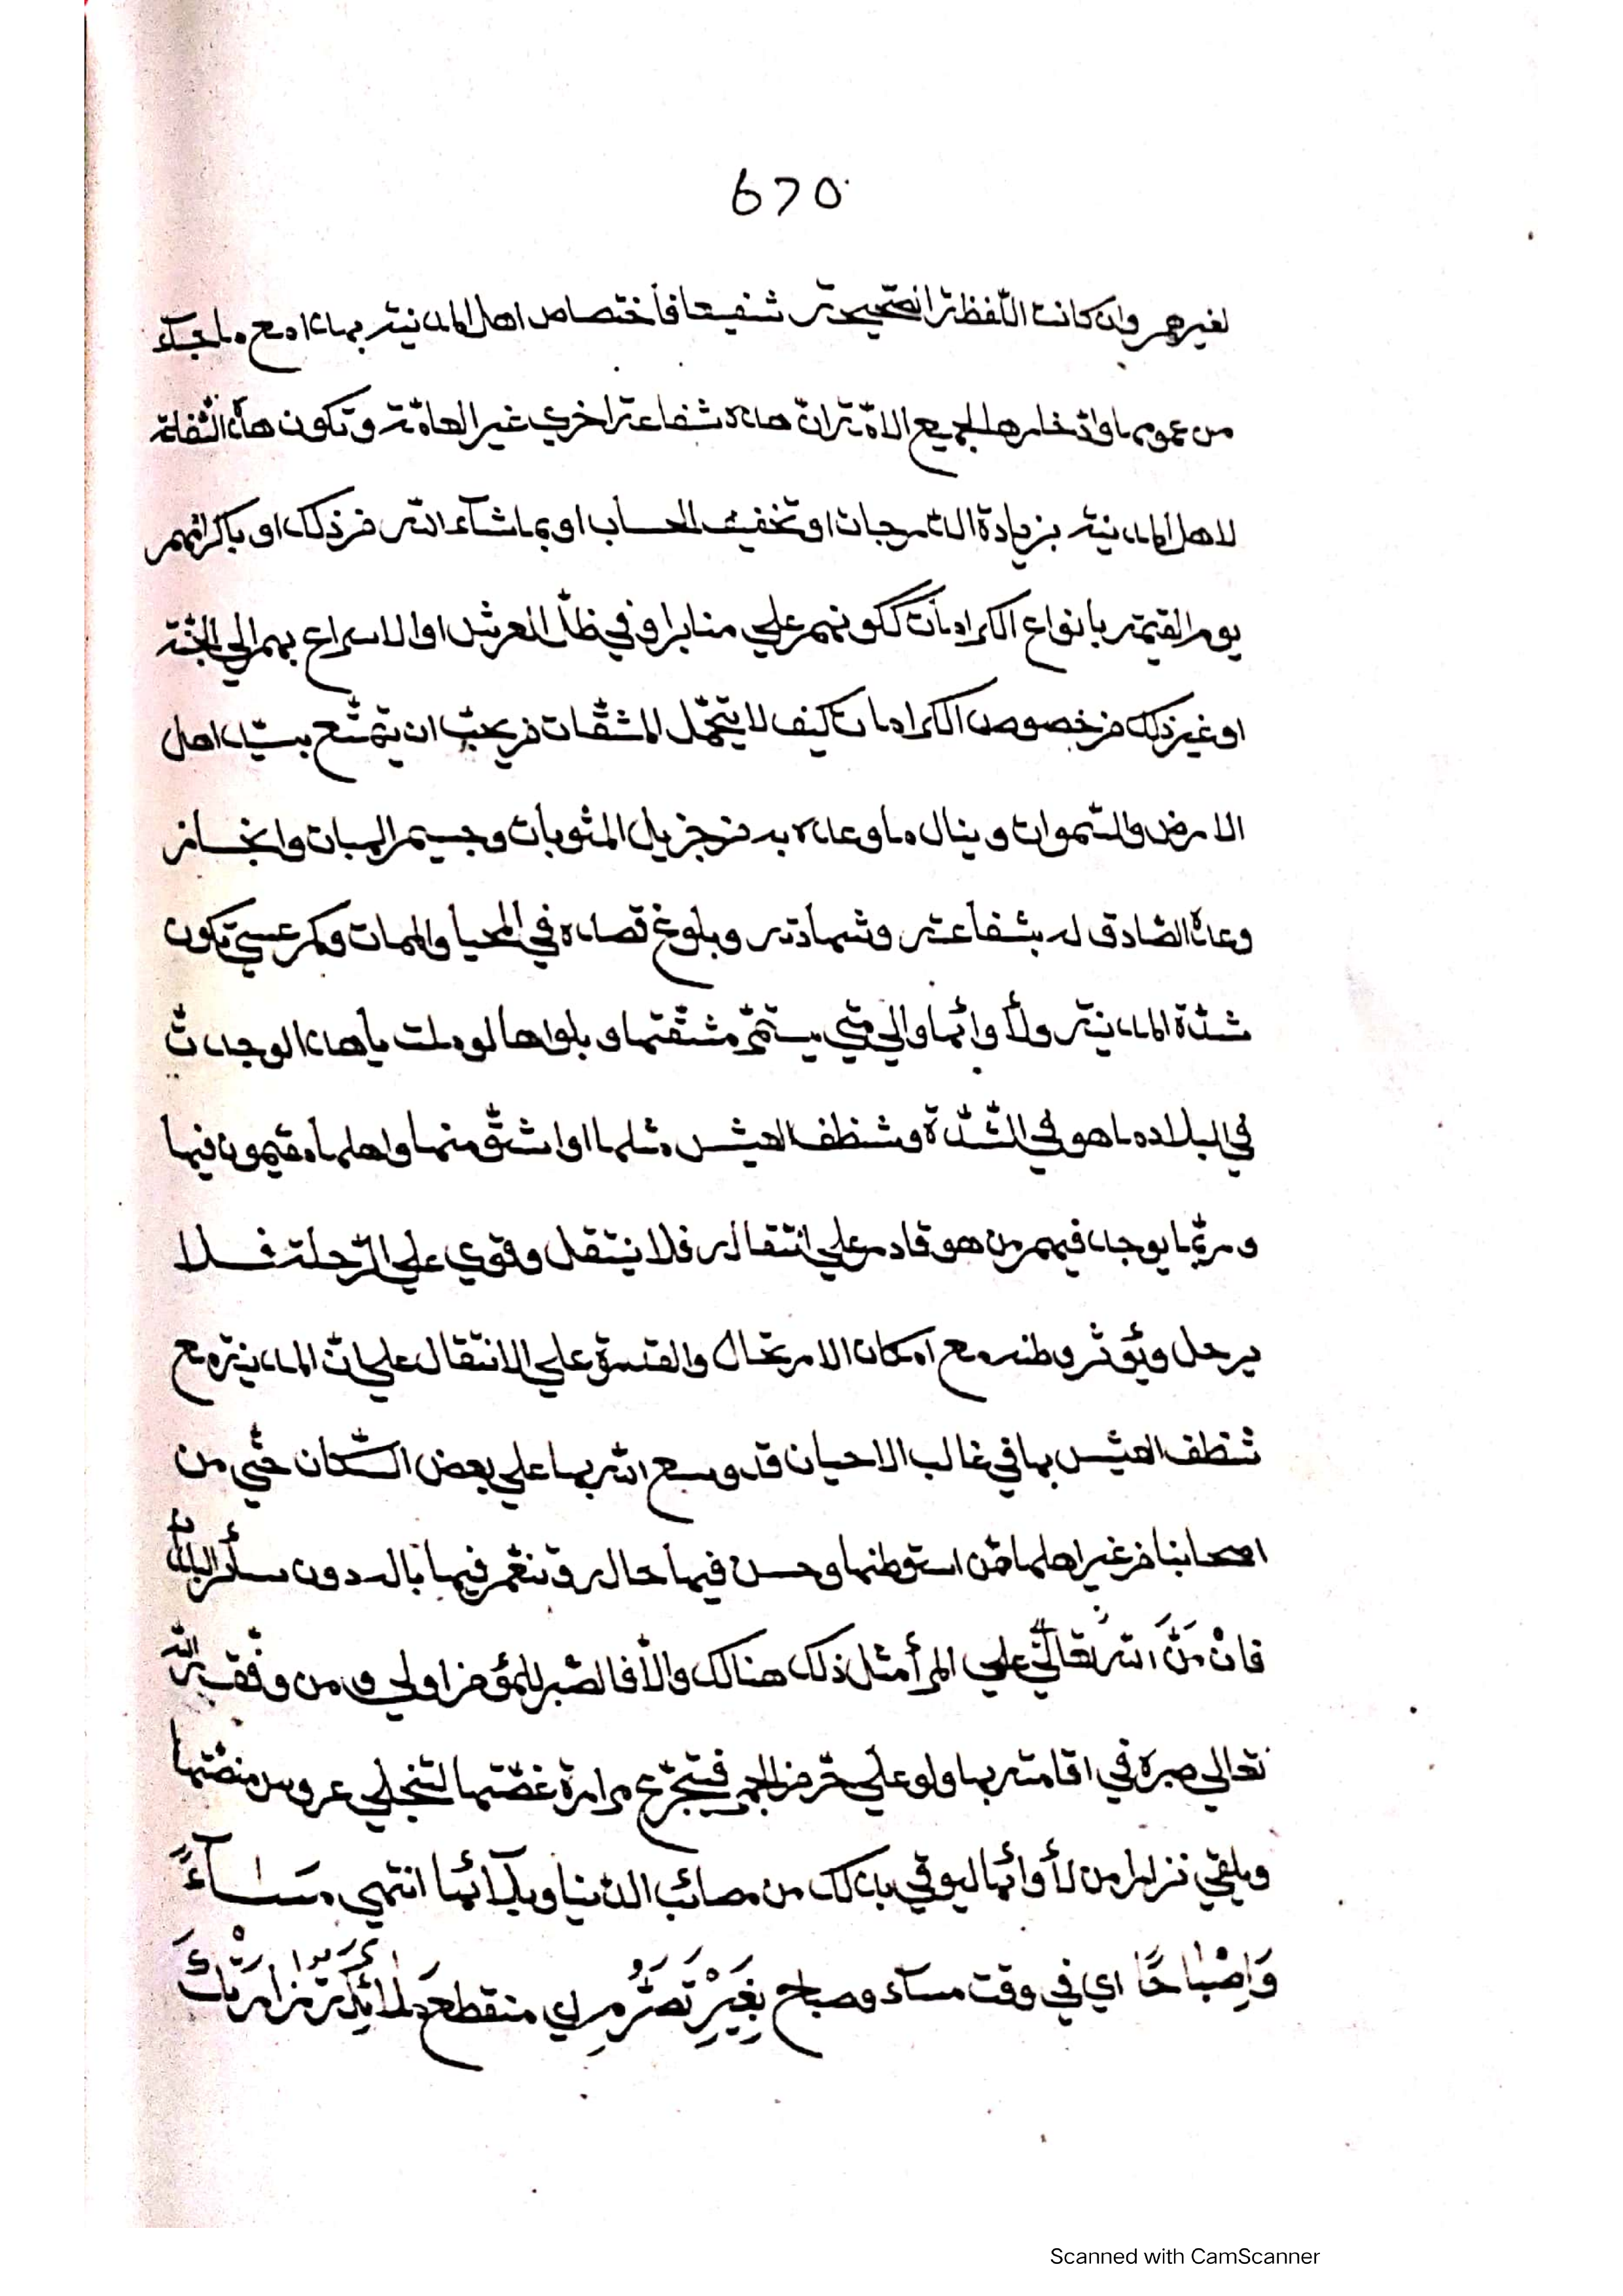 670
لغيرهم وان كانت اللّفظة الصّحيحة شفيعا فاختصاص اهل المدينة بهذا مع ما جآء
من عمومها وادّخارها لجميع الامّة انّ هذه شفاعة اخري غير العامّة وتكون هذه الشّفاعة
لاهل المدينة بزيادة الدّرجات او تخفيف الحساب او بما شآء الله من ذلك او باكرامهم
يوم القيمة بانواع الكرامات ككونهم علي منابر او في ظلّ العرش او الاسراع بهم الي الجنّة
او غير ذلك من خصوص الكرامات كيف لا يتحمّل المشقّات من يحبّ ان يتمتّع بسيّد اهل
الارض والسّموات وينال ما وعده به من جزيل المثوبات وجسيم الهبات وانجاز
وعده الصّادق له بشفاعته وشهادته وبلوغ قصده في المحيا والممات وكم عسي تكون
شدّة المدينة ولأوائها والي متي يستمرّ مشقّتها وبلواها لو تاملت يا هذا لوجدت
في البلاد ما هو في الشّدّة وشظف العيش مثلها او اشقّ منها واهلها مقيمون فيها
وربّما يوجد فيهم من هو قادر علي انتقاله فلا ينتقل وقوي علي الرّحلة فلا
يرحل ويؤثر وطنه مع امكان الارتحال والقدرة علي الانتقال علي انّ المدينة مع
شظف العيش بها في غالب الاحيان قد وسع الله بها علي بعض السّكان حتّي من
اصحابنا من غير اهلها ممّن استوطنها وحسن فيها حاله وتنعّم فيها باله دون سائر البلدان
فانْ مَنَّ الله تعالي علي المرأ مثل ذلك هنالك والّا فالصّبر للمؤمن اولي ومن وفّقه الله
تعالي صبره في اقامته بها ولو علي حرّ من الجمر فيتجرّع مرارة غصّتها لتنجلي عروس منصّتها
ويلقي نزرا من لأوائها ليوقي بذلك من مصائب الدّنيا وبلآئها انتهي مَسَاءً
وَاِصْبَاحًا اي في وقت مسآء وصباح بِغَيْرِ تَصَرُّمٍ اي منقطع